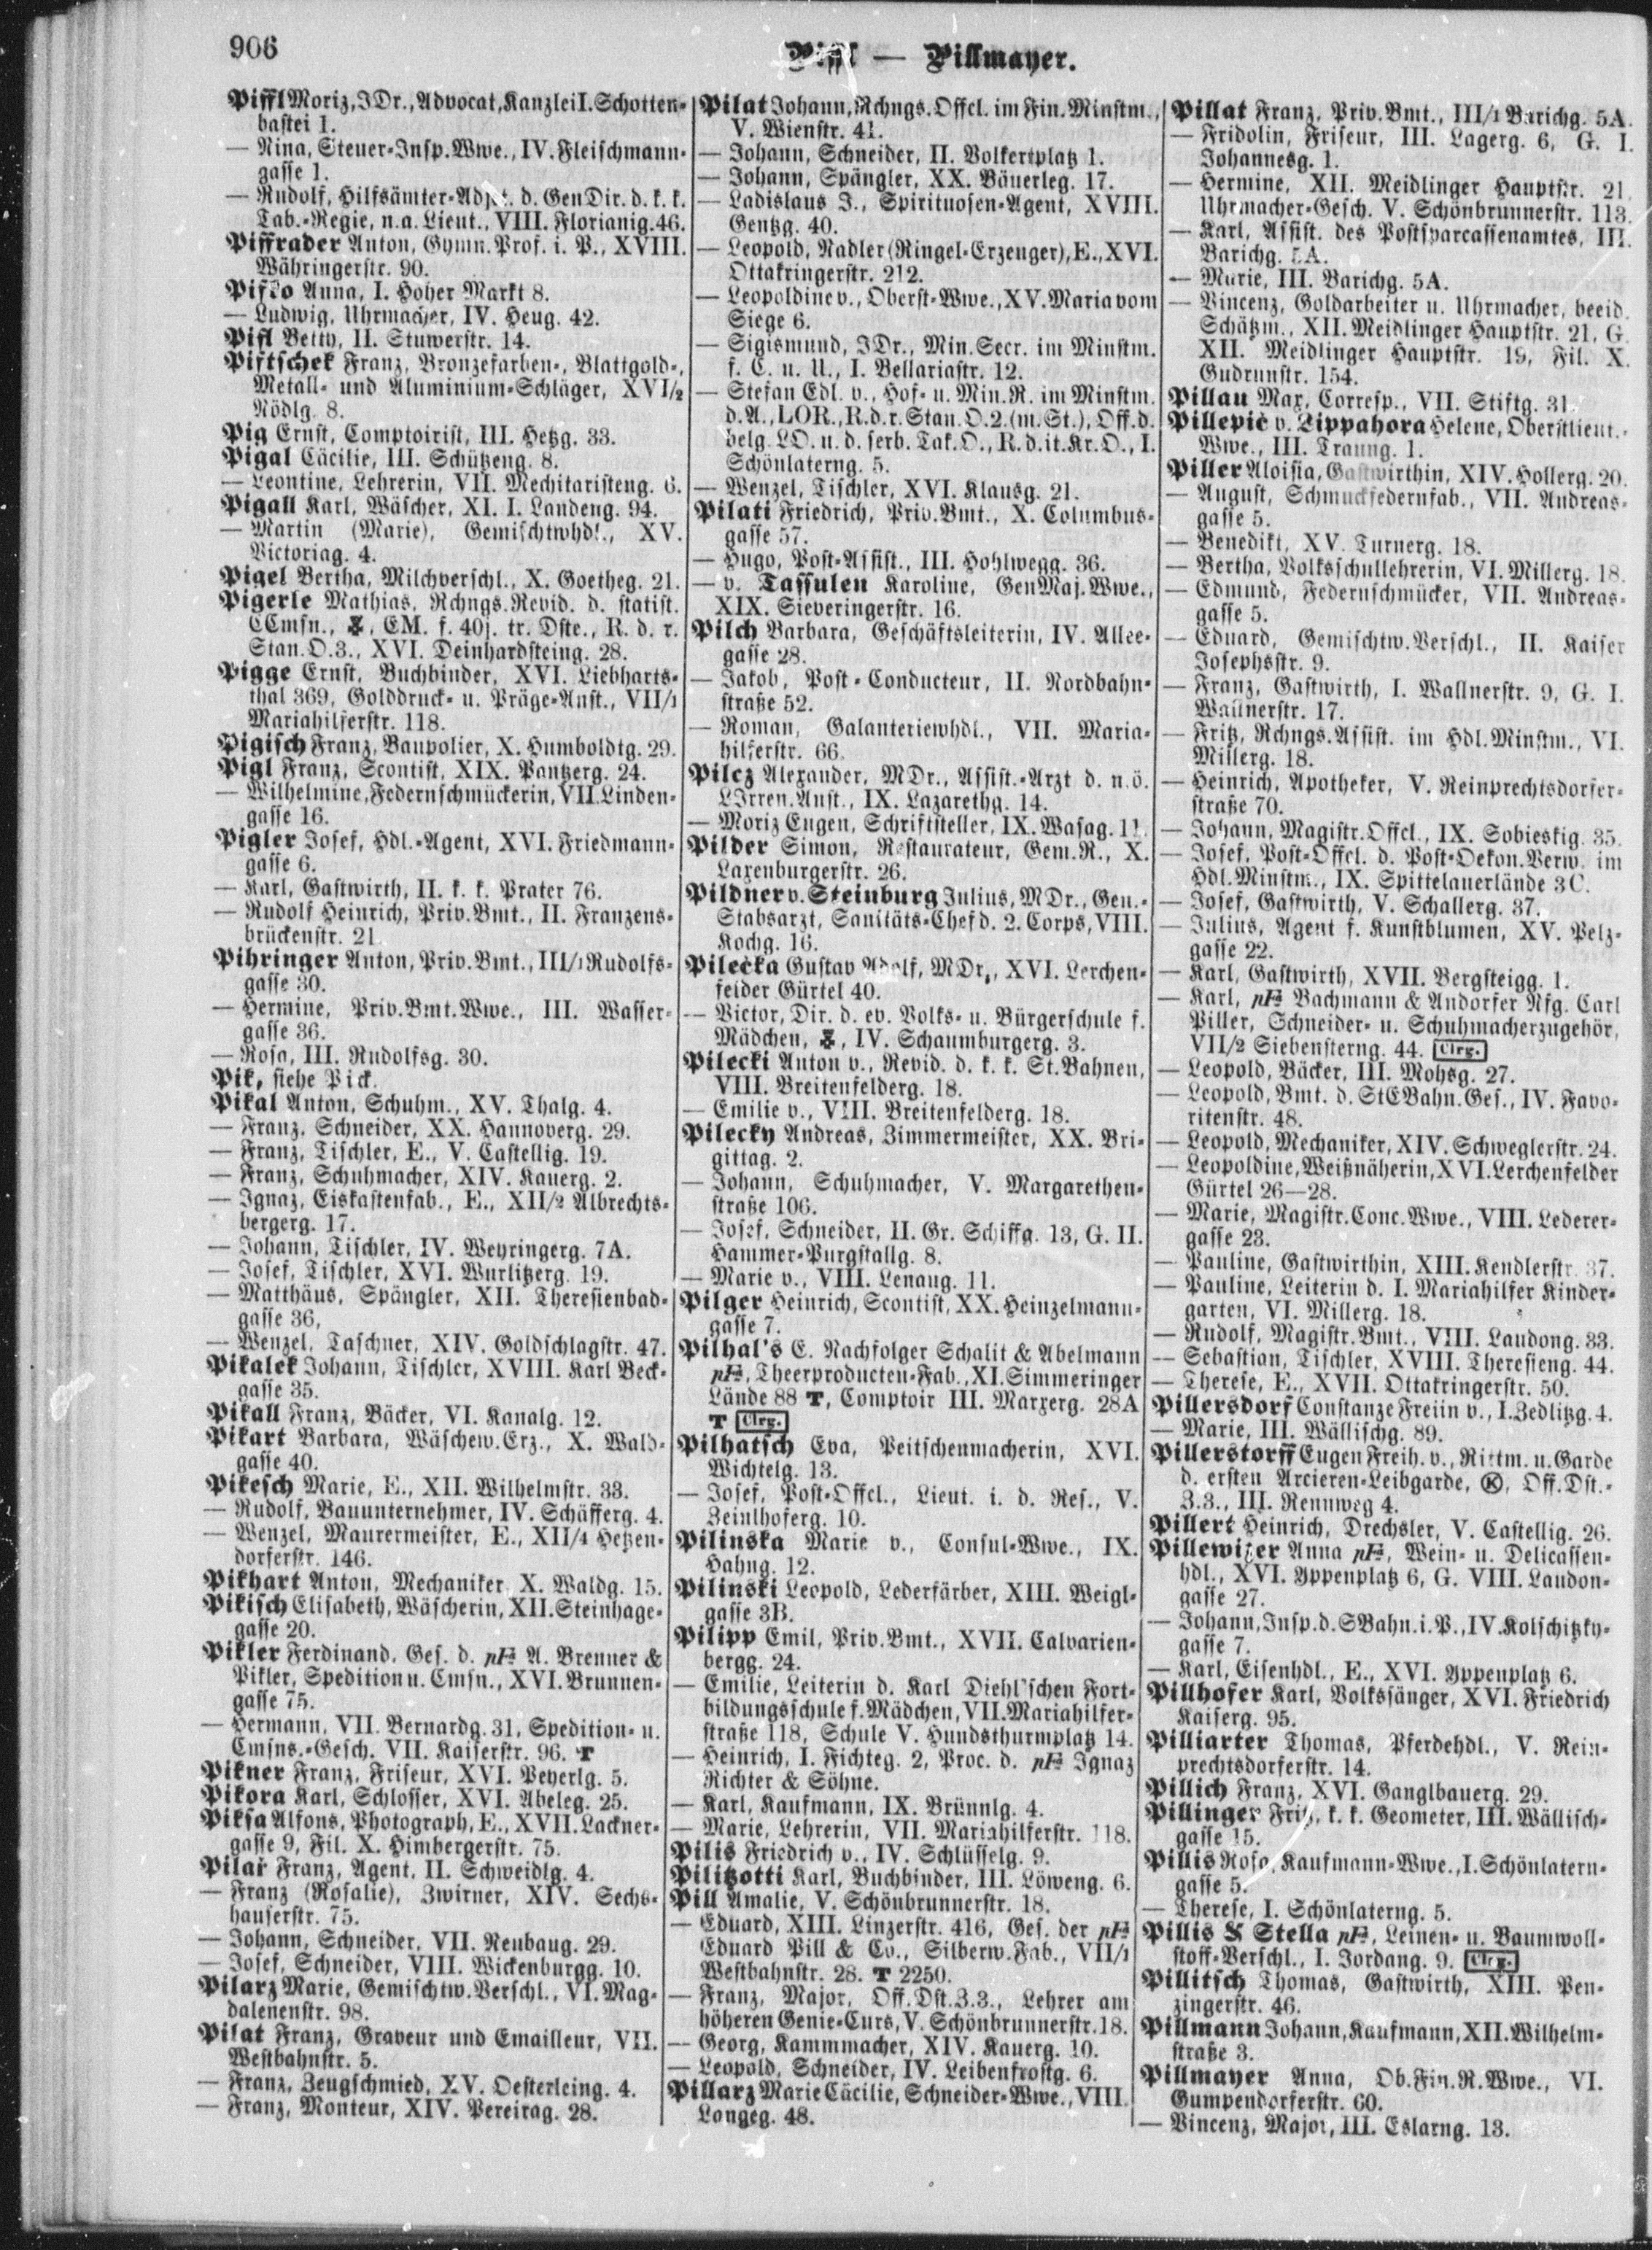 906
Piffl — Pillmayer.
Piffl Moriz, JDr., Advocat, Kanzlei I. Schotten-
bastei 1.
— Nina, Steuer-Insp.Wwe., IV. Fleischmann-
gasse 1.
— Rudolf, Hilfsämter-Adjct. d. GenDir. d. k. k.
Tab.-Regie, n.a. Lieut., VIII. Florianig. 46.
Piffrader Anton, Gymn.Prof. i. P., XVIII.
Währingerstr. 90.
Pifko Anna, I. Hoher Markt 8.
— Ludwig, Uhrmacher, IV. Heug. 42.
Pifl Betty, II. Stuwerstr. 14.
Piftschek Franz, Bronzefarben-, Blattgold-,
Metall- und Aluminium-Schläger, XVI/2
Nödlg. 8.
Pig Ernst, Comptoirist, III. Hetzg. 33.
Pigal Cäcilie, III. Schützeng. 8.
— Leontine, Lehrerin, VII. Mechitaristeng. 6.
Pigall Karl, Wäscher, XI. I. Landeng. 94.
— Martin (Marie), Gemischtwhdl., XV.
Victoriag. 4.
Pigel Bertha, Milchverschl., X. Goetheg. 21.
Pigerle Mathias, Rchngs.Revid. d. statist.
CCmsn., EM. f. 40j. tr. Dste., R. d. r.
Stan.O.3., XVI. Deinhardsteing. 28.
Pigge Ernst, Buchbinder, XVI. Liebharts-
thal 369, Golddruck- u. Präge-Anst., VII/1
Mariahilferstr. 118.
Pigisch Franz, Baupolier, X. Humboldtg. 29.
Pigl Franz, Scontist, XIX. Pantzerg. 24.
— Wilhelmine, Federnschmückerin, VII. Linden-
gasse 16.
Pigler Josef, Hdl.-Agent, XVI. Friedmann-
gasse 6.
— Karl, Gastwirth, II. k. k. Prater 76.
— Rudolf Heinrich, Priv.Bmt., II. Franzens-
brückenstr. 21.
Pihringer Anton, Priv.Bmt., III/1 Rudolfs-
gasse 30.
— Hermine, Priv.Bmt.Wwe., III. Wasser-
gasse 36.
— Rosa, III. Rudolfsg. 30.
Pik, siehe Pick.
Pikal Anton, Schuhm., XV. Thalg. 4.
— Franz, Schneider, XX. Hannoverg. 29.
— Franz, Tischler, E., V. Castellig. 19.
— Franz, Schuhmacher, XIV. Kauerg. 2.
— Ignaz, Eiskastenfab., E., XII/2 Albrechts-
bergerg. 17.
— Johann, Tischler, IV. Weyringerg. 7A.
— Josef, Tischler, XVI. Wurlitzerg. 19.
— Matthäus, Spängler, XII. Theresienbad-
gasse 36,
— Wenzel, Taschner, XIV. Goldschlagstr. 47.
Pikalek Johann, Tischler, XVIII. Karl Beck-
gasse 35.
Pikall Franz, Bäcker, VI. Kanalg. 12.
Pikart Barbara, Wäschew.Erz., X. Wald-
gasse 40.
Pikesch Marie, E., XII. Wilhelmstr. 33.
— Rudolf, Bauunternehmer, IV. Schäfferg. 4.
— Wenzel, Maurermeister, E., XII/4 Hetzen-
dorferstr. 146.
Pikhart Anton, Mechaniker, X. Waldg. 15.
Pikisch Elisabeth, Wäscherin, XII. Steinhage-
gasse 20.
Pikler Ferdinand, Ges. d. pF: A. Brenner &
Pikler, Spedition u. Cmsn., XVI. Brunnen-
gasse 75.
— Hermann, VII. Bernardg. 31, Spedition- u.
Cmsns.-Gesch. VII. Kaiserstr. 96. T
Pikner Franz, Friseur, XVI. Peyerlg. 5.
Pikora Karl, Schlosser, XVI. Abeleg. 25.
Piksa Alfons, Photograph, E., XVII. Lackner-
gasse 9, Fil. X. Himbergerstr. 75.
Pilař Franz, Agent, II. Schweidlg. 4.
— Franz (Rosalie), Zwirner, XIV. Sechs-
hauserstr. 75.
— Johann, Schneider, VII. Neubaug. 29.
— Josef, Schneider, VIII. Wickenburgg. 10.
Pilarz Marie, Gemischtw.Verschl., VI. Mag-
dalenenstr. 98.
Pilat Franz, Graveur und Emailleur, VII.
Westbahnstr. 5.
— Franz, Zeugschmied, XV. Oesterleing. 4.
— Franz, Monteur, XIV. Pereirag. 28.
Pilat Johann, Rchngs.Offcl. im Fin.Minstm.,
V. Wienstr. 41.
— Johann, Schneider, II. Volkertplatz 1.
— Johann, Spängler, XX. Bäuerleg. 17.
— Ladislaus J., Spirituosen-Agent, XVIII.
Gentzg. 40.
— Leopold, Nadler (Ringel-Erzeuger), E., XVI.
Ottakringerstr. 212.
— Leopoldine v., Oberst-Wwe., XV. Maria vom
Siege 6.
— Sigismund, JDr., Min.Secr. im Minstm.
f. C. u. U., I. Bellariastr. 12.
— Stefan Edl. v., Hof- u. Min.R. im Minstm.
d. A., LOR., R.d.r. Stan.O.2. (m.St.), Off.d.
belg. LO. u. d. serb. Tak.O., R.d.it.Kr.O., I.
Schönlaterng. 5.
— Wenzel, Tischler, XVI. Klausg. 21.
Pilati Friedrich, Priv.Bmt., X. Columbus-
gasse 57.
— Hugo, Post-Assist., III. Hohlwegg. 36.
— v. Tassulen Karoline, GenMaj.Wwe.,
XIX. Sieveringerstr. 16.
Pilch Barbara, Geschäftsleiterin, IV. Allee-
gasse 28.
— Jakob, Post-Conducteur, II. Nordbahn-
straße 52.
— Roman, Galanteriewhdl., VII. Maria-
hilferstr. 66.
Pilcz Alexander, MDr., Assist.-Arzt d. n.ö.
LIrren.Anst., IX. Lazarethg. 14.
— Moriz Eugen, Schriftsteller, IX. Wasag. 11.
Pilder Simon, Restaurateur, Gem.R., X.
Laxenburgerstr. 26.
Pildner v. Steinburg Julius, MDr., Gen.-
Stabsarzt, Sanitäts-Chef d. 2. Corps, VIII.
Kochg. 16.
Pilečka Gustav Adolf, MDr., XVI. Lerchen-
felder Gürtel 40.
— Victor, Dir. d. ev. Volks- u. Bürgerschule f.
Mädchen, IV. Schaumburgerg. 3.
Pilecki Anton v., Revid. d. k. k. St.Bahnen,
VIII. Breitenfelderg. 18.
— Emilie v., VIII. Breitenfelderg. 18.
Pilecky Andreas, Zimmermeister, XX. Bri-
gittag. 2.
— Johann, Schuhmacher, V. Margarethen-
straße 106.
— Josef, Schneider, II. Gr. Schiffg. 13, G. II.
Hammer-Purgstallg. 8.
— Marie v., VIII. Lenaug. 11.
Pilger Heinrich, Scontist, XX. Heinzelmann-
gasse 7.
Pilhal's E. Nachfolger Schalit & Abelmann
pF:, Theerproducten-Fab., XI. Simmeringer
Lände 88 T, Comptoir III. Marxerg. 28A
T Clrg.
Pilhatsch Eva, Peitschenmacherin, XVI.
Wichtelg. 13.
— Josef, Post-Offcl., Lieut. i. d. Res., V.
Zeinlhoferg. 10.
Pilinska Marie v., Consul-Wwe., IX.
Hahng. 12.
Pilinski Leopold, Lederfärber, XIII. Weigl-
gasse 3B.
Pilipp Emil, Priv.Bmt., XVII. Calvarien-
bergg. 24.
— Emilie, Leiterin d. Karl Diehl'schen Fort-
bildungsschule f. Mädchen, VII. Mariahilfer-
straße 118, Schule V. Hundsthurmplatz 14.
— Heinrich, I. Fichteg. 2, Proc. d. pF: Ignaz
Richter & Söhne.
— Karl, Kaufmann, IX. Brünnlg. 4.
— Marie, Lehrerin, VII. Mariahilferstr. 118.
Pilis Friedrich v., IV. Schlüsselg. 9.
Pilitzotti Karl, Buchbinder, III. Löweng. 6.
Pill Amalie, V. Schönbrunnerstr. 18.
— Eduard, XIII. Linzerstr. 416, Ges. der pF:
Eduard Pill & Co., Silberw.Fab., VII/1
Westbahnstr. 28. T 2250.
— Franz, Major, Off.Dst.Z.3., Lehrer am
höheren Genie-Curs, V. Schönbrunnerstr. 18.
— Georg, Kammmacher, XIV. Kauerg. 10.
— Leopold, Schneider, IV. Leibenfrostg. 6.
Pillarz Marie Cäcilie, Schneider-Wwe., VIII.
Langeg. 48.
Pillat Franz, Priv.Bmt., III/1 Barichg. 5A.
— Fridolin, Friseur, III. Lagerg. 6, G. I.
Johannesg. 1.
— Hermine, XII. Meidlinger Hauptstr. 21,
Uhrmacher-Gesch. V. Schönbrunnerstr. 113.
— Karl, Assist. des Postsparcassenamtes, III.
Barichg. 5A.
— Marie, III. Barichg. 5A.
— Vincenz, Goldarbeiter u. Uhrmacher, beeid.
Schätzm., XII. Meidlinger Hauptstr. 21, G.
XII. Meidlinger Hauptstr. 19, Fil. X.
Gudrunstr. 154.
Pillau Max, Corresp., VII. Stiftg. 31.
Pillepić v. Lippahora Helene, Oberstlieut.-
Wwe., III. Traung. 1.
Piller Aloisia, Gastwirthin, XIV. Hollerg. 20.
— August, Schmuckfedernfab., VII. Andreas-
gasse 5.
— Benedikt, XV. Turnerg. 18.
— Bertha, Volksschullehrerin, VI. Millerg. 18.
— Edmund, Federnschmücker, VII. Andreas-
gasse 5.
— Eduard, Gemischtw.Verschl., II. Kaiser
Josephsstr. 9.
— Franz, Gastwirth, I. Wallnerstr. 9, G. I.
Wallnerstr. 17.
— Fritz, Rchngs.Assist. im Hdl.Minstm., VI.
Millerg. 18.
— Heinrich, Apotheker, V. Reinprechtsdorfer-
straße 70.
— Johann, Magistr.Offcl., IX. Sobieskig. 35.
— Josef, Post-Offcl. d. Post-Oekon.Verw. im
Hdl.Minstm., IX. Spittelauerlände 3C.
— Josef, Gastwirth, V. Schallerg. 37.
— Julius, Agent f. Kunstblumen, XV. Pelz-
gasse 22.
— Karl, Gastwirth, XVII. Bergsteigg. 1.
— Karl, pF: Bachmann & Andorfer Nfg. Carl
Piller, Schneider- u. Schuhmacherzugehör,
VII/2 Siebensterng. 44. Clrg.
— Leopold, Bäcker, III. Mohsg. 27.
— Leopold, Bmt. d. StEBahn.Ges., IV. Favo-
ritenstr. 48.
— Leopold, Mechaniker, XIV. Schweglerstr. 24.
— Leopoldine, Weißnäherin, XVI. Lerchenfelder
Gürtel 26—28.
— Marie, Magistr.Conc.Wwe., VIII. Lederer-
gasse 23.
— Pauline, Gastwirthin, XIII. Kendlerstr. 37.
— Pauline, Leiterin d. I. Mariahilfer Kinder-
garten, VI. Millerg. 18.
— Rudolf, Magistr.Bmt., VIII. Laudong. 33.
— Sebastian, Tischler, XVIII. Theresieng. 44.
— Therese, E., XVII. Ottakringerstr. 50.
Pillersdorf Constanze Freiin v., I. Zedlitzg. 4.
— Marie, III. Wällischg. 89.
Pillerstorff Eugen Freih. v., Rittm. u. Garde
d. ersten Arcieren-Leibgarde, Ⓚ, Off.Dst.-
Z.3., III. Rennweg 4.
Pillert Heinrich, Drechsler, V. Castellig. 26.
Pillewizer Anna pF:, Wein- u. Delicassen-
hdl., XVI. Yppenplatz 6, G. VIII. Laudon-
gasse 27.
— Johann, Insp. d. SBahn. i. P., IV. Kolschitzky-
gasse 7.
— Karl, Eisenhdl., E., XVI. Yppenplatz 6.
Pillhofer Karl, Volkssänger, XVI. Friedrich
Kaiserg. 95.
Pilliarter Thomas, Pferdehdl., V. Rein-
prechtsdorferstr. 14.
Pillich Franz, XVI. Ganglbauerg. 29.
Pillinger Fritz, k. k. Geometer, III. Wällisch-
gasse 15.
Pillis Rosa, Kaufmann-Wwe., I. Schönlatern-
gasse 5.
— Therese, I. Schönlaterng. 5.
Pillis & Stella pF:, Leinen- u. Baumwoll-
stoff-Verschl., I. Jordang. 9. Clrg.
Pillitsch Thomas, Gastwirth, XIII. Pen-
zingerstr. 46.
Pillmann Johann, Kaufmann, XII. Wilhelm-
straße 3.
Pillmayer Anna, Ob.Fin.R.Wwe., VI.
Gumpendorferstr. 60.
— Vincenz, Major, III. Eslarng. 13.